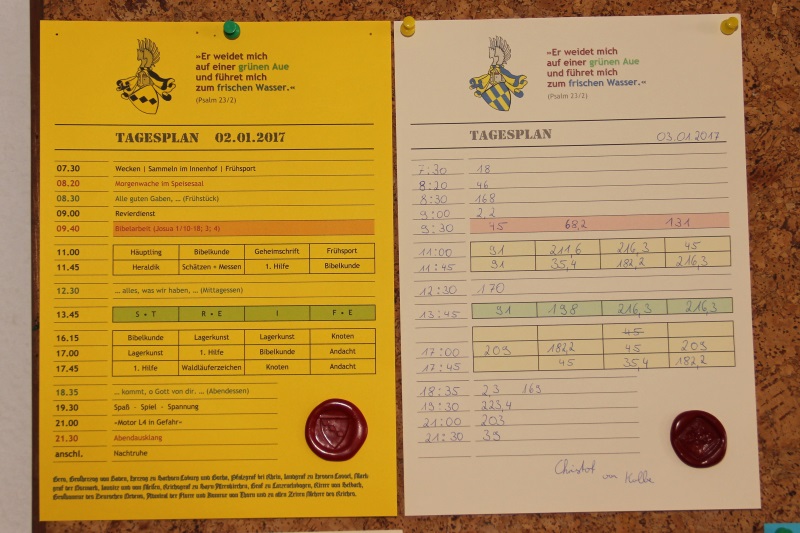 »Er weidet mich
auf einer grünen Aue
und führet mich
zum frischen Wasser.«
(Psalm 23/2)
TAGESPLAN 02.01.2017
07.30 Wecken | Sammeln im Innenhof | Frühsport
08.20 Morgenwache im Speisesaal
08.30 Alle guten Gaben, ... (Frühstück)
09.00 Revierdienst
09.40 Bibelarbeit (Josua 1/10-18; 3; 4)
11.00 Häuptling Bibelkunde Geheimschrift Frühsport
11.45 Heraldik Schätzen + Messen 1. Hilfe Bibelkunde
12.30 ... alles, was wir haben, ... (Mittagessen)
13.45 S + T R + E I F + E
16.15 Bibelkunde Lagerkunst Lagerkunst Knoten
17.00 Lagerkunst 1. Hilfe Bibelkunde Andacht
17.45 1. Hilfe Waldläuferzeichen Knoten Andacht
18.35 ... kommt, o Gott von dir. ... (Abendessen)
19.30 Spaß - Spiel - Spannung
21.00 »Motor L4 in Gefahr«
21.30 Abendausklang
anschl. Nachtruhe
»Er weidet mich
auf einer grünen Aue
und führet mich
zum frischen Wasser.«
(Psalm 23/2)
TAGESPLAN 03.01.2017
7:30 18
8:20 46
8:30 168
9:00 2,2
9:30 45 68,2 131
11:00 91 211,6 216,3 45
11:45 91 35,4 182,2 216,3
12:30 170
13:45 91 198 216,3 216,3
45
17:00 209 182,2 45 209
17:45 45 35,4 182,2
18:35 2,3 169
19:30 223,4
21:00 203
21:30 39